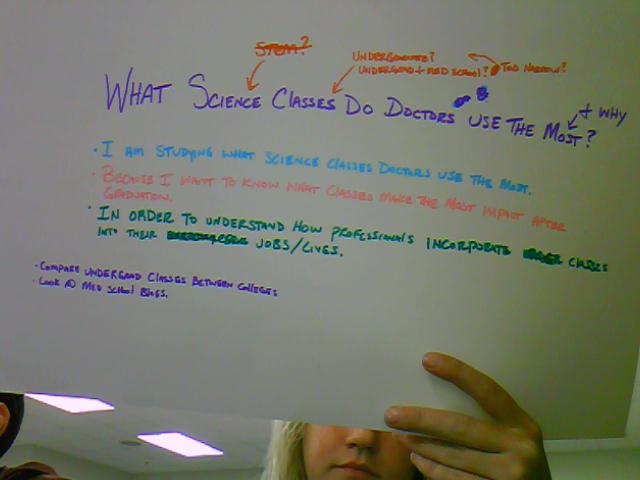 STEM?
UNDERGRADUATE?
UNDERGRAD + MED SCHOOL?
TOO NARROW?
WHAT SCIENCE CLASSES DO DOCTORS USE THE MOST?
+ WHY
• I AM STUDYING WHAT SCIENCE CLASSES DOCTORS USE THE MOST.
• BECAUSE I WANT TO KNOW WHAT CLASSES MAKE THE MOST IMPACT AFTER
GRADUATION.
• IN ORDER TO UNDERSTAND HOW PROFESSIONALS INCORPORATE CLASSES
INTO THEIR JOBS/LIVES.
• COMPARE UNDERGRAD CLASSES BETWEEN COLLEGES
• LOOK @ MED SCHOOL BLOGS.